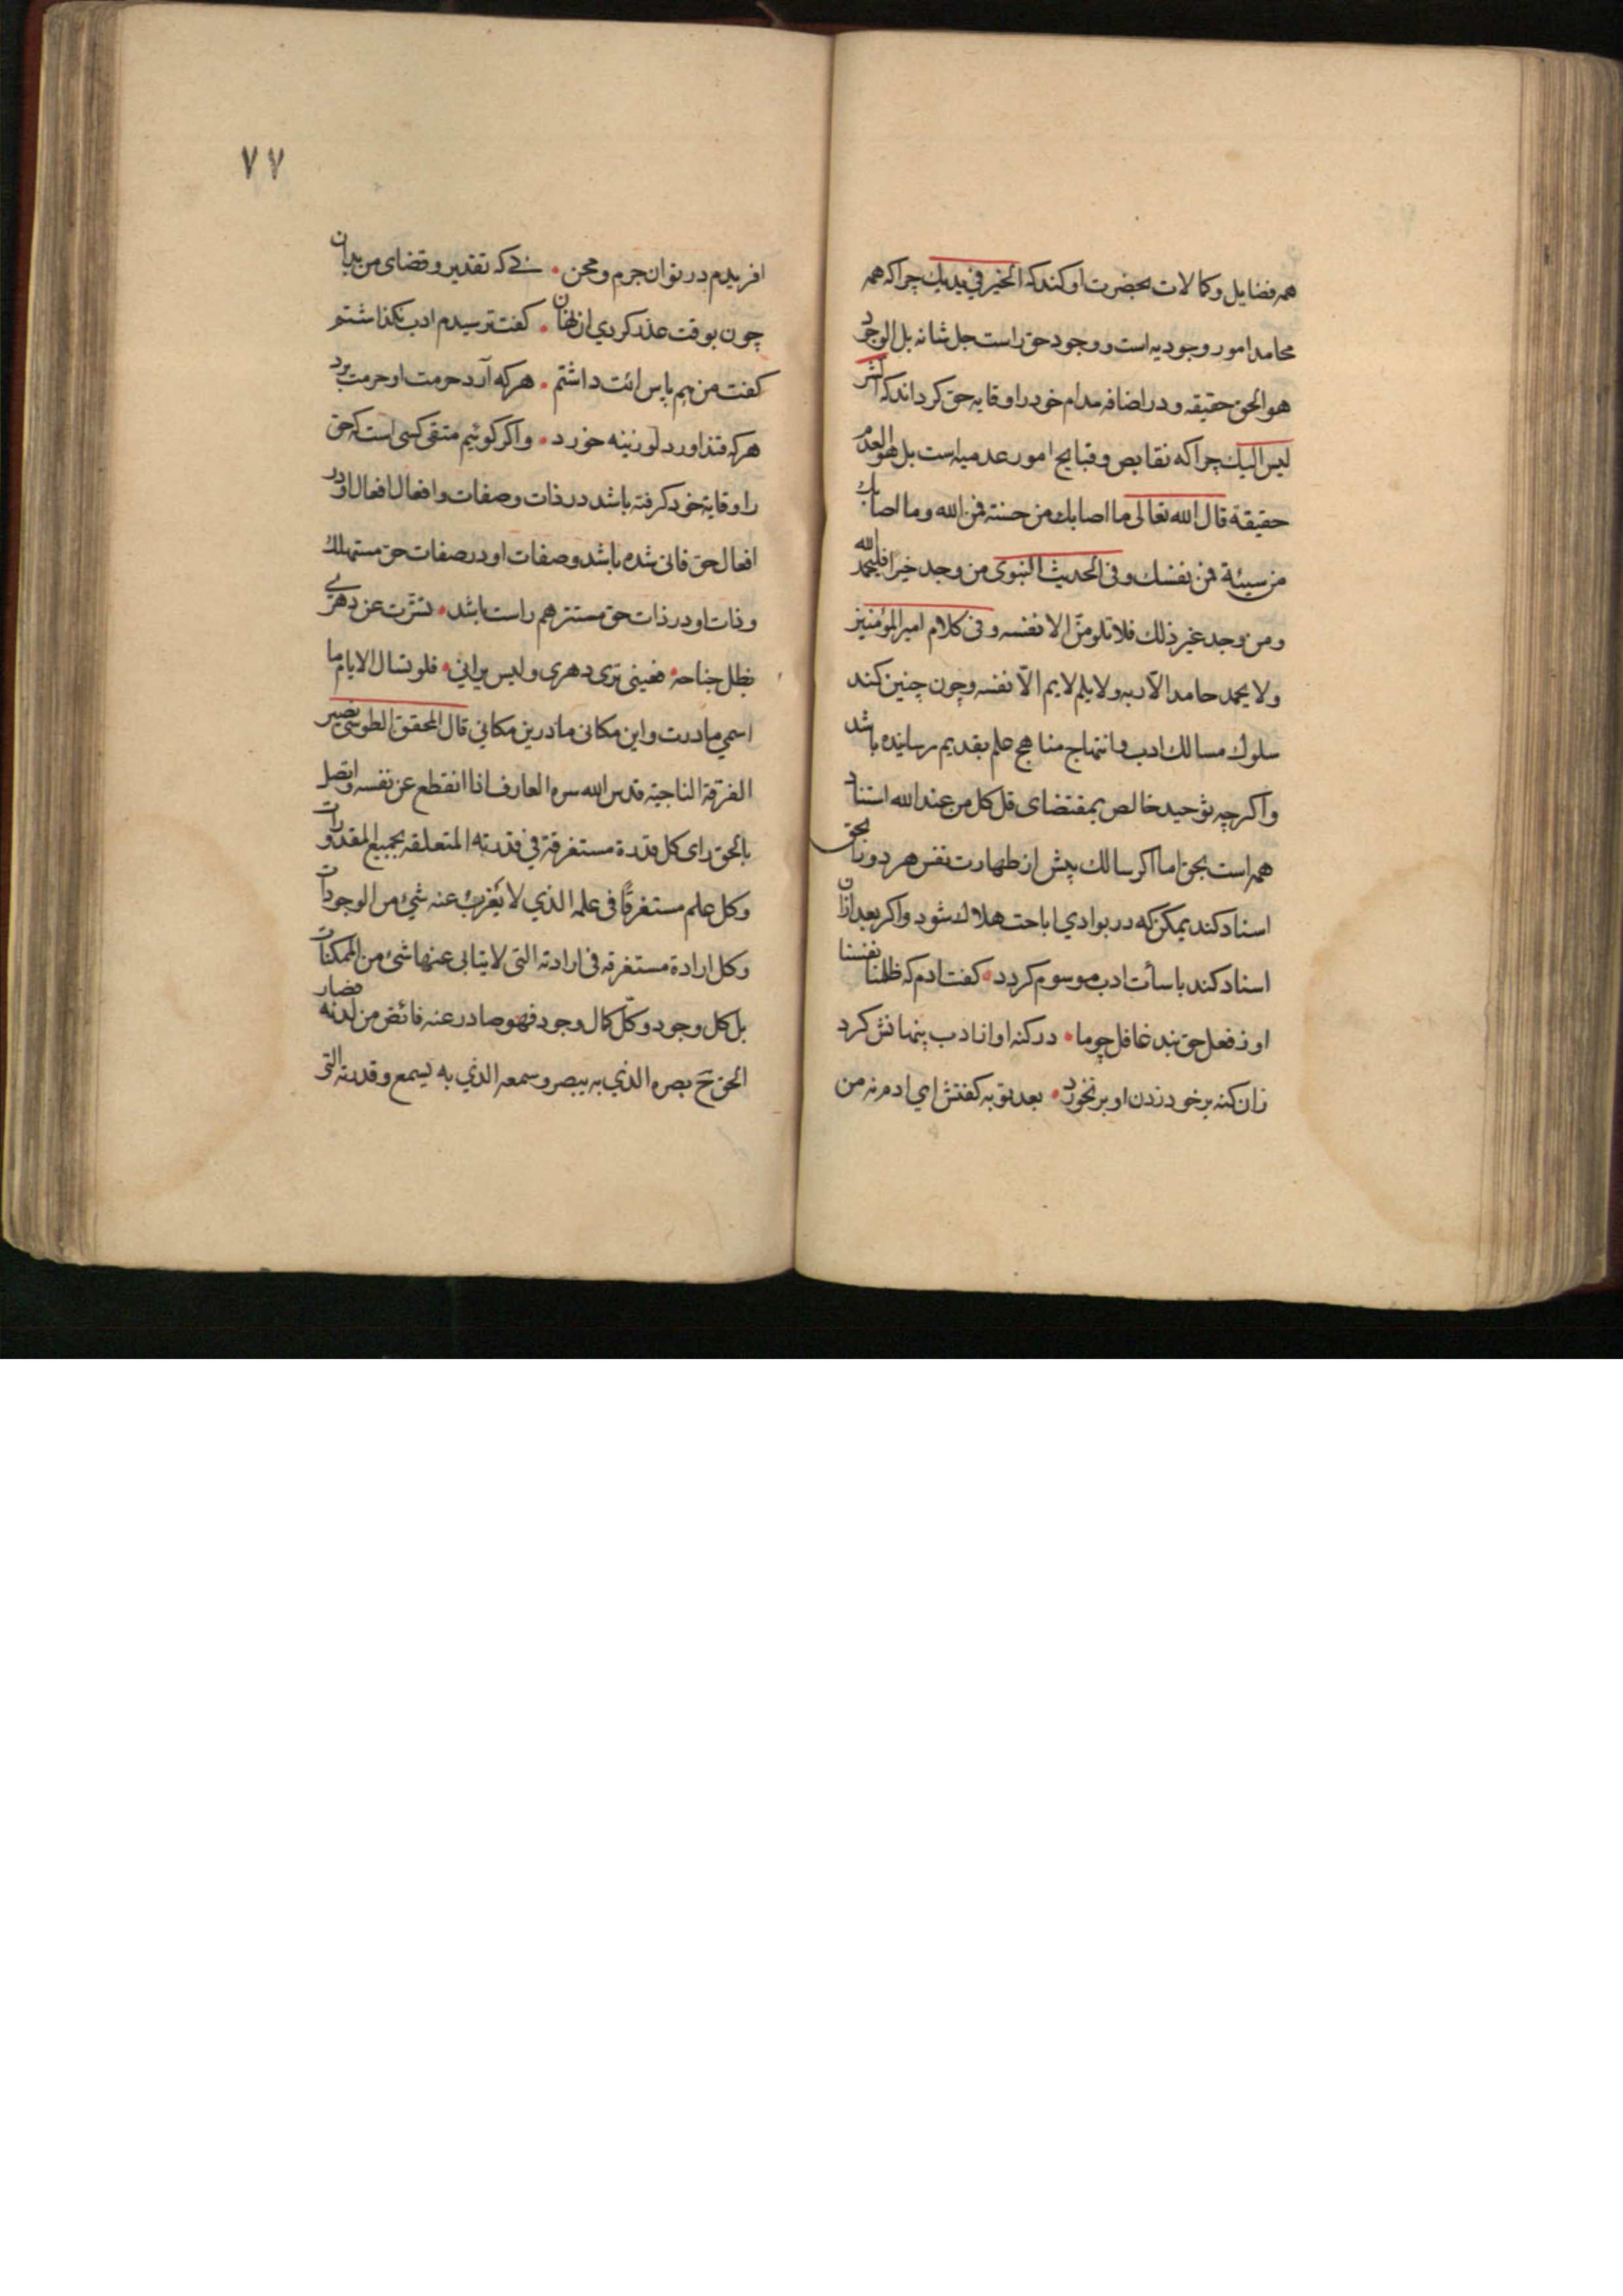 همه فضایل و کمالات بحضرت او کند که الخیر فی یدیك چرا که همه
محامد امور وجودیه است و وجود حق راست جل شانه بل الوجود
هو الحق حقیقه و در اضافه مدام خود را وقایه حق کرداند که الشر
لیس الیك چرا که نقایص و قبایح امور عدمیه است بل هو العدم
حقیقة قال الله تعالی ما اصابك من حسنة فمن الله وما اصابك
من سیئة فمن نفسك و فی الحدیث النبوی من وجد خیرا فلیحمد الله
و من وجد غیر ذلك فلا تلومنّ الا نفسه و فی کلام امیر المؤمنین
ولا یحمد حامد الّا ربه ولا یلم لایم الّا نفسه و چون چنین کند
سلوك مسالك ادب و انتهاج مناهج علم بقدیم رسانیده باشد
و اکر چه توحید خالص بمقتضای قل کل من عند الله استناد
همه است بحق اما اکر سالك پیش از طهارت نفس هر دو را بحق
اسناد کند یمکن که در بوادي اباحت هلاك شود و اکر بعد از ان
اسناد کند باسأت ادب موسوم کردد • کفت ادم که ظلمنا نفسنا
او ز فعل حق نبد غافل چو ما • در کنه او از ادب پنهانش کرد
زان کنه بر خود زدن او بر نخورد • بعد توبه کفتش اي ادم نه من
۷۷
افریدم در تو ان جرم و محن • نے که تقدیر و قضای من بد ان
چون بوقت عذر کردي ان نهان • کفت ترسیدم ادب نکذاشتم
کفت من هم پاس انت داشتم • هر که آرد حرمت او حرمت برد
هر که قند اورد لوزینه خورد • و اکر کوئیم متقی کسی است که حق
را وقایهٔ خود کرفته باشد در ذات و صفات و افعال افعال او در
افعال حق فانی شده باشد و صفات او در صفات حق مستهلك
و ذات او در ذات حق مستتر هم راست باشد • تسترت عن دهرے
بظل جناحه • فعینی تری دهری و لیس یرانی • فلو تسال الایام ما
اسمي ما درت و این مکانی ما درین مکانی قال المحقق الطوسی نصیر
الفرقة الناجیة قدس الله سره العارف اذا انقطع عن نفسه و اتصل
بالحق رای کل قدرة مستغرقة في قدرته المتعلقه بجمیع المقدورات
وکل علم مستغرقًا فی علمه الذي لا یَغْرب عنه شيء من الوجودات
وکل ارادة مستغرقه فی ارادته التی لا یتابی عنها شئ من الممکنات
بل کل وجود و کلّ کمال وجود فهو صادر عنه فائض من لدنه فصار
الحق ح بصره الذي به یبصر و سمعه الذي به یسمع و قدرته التی